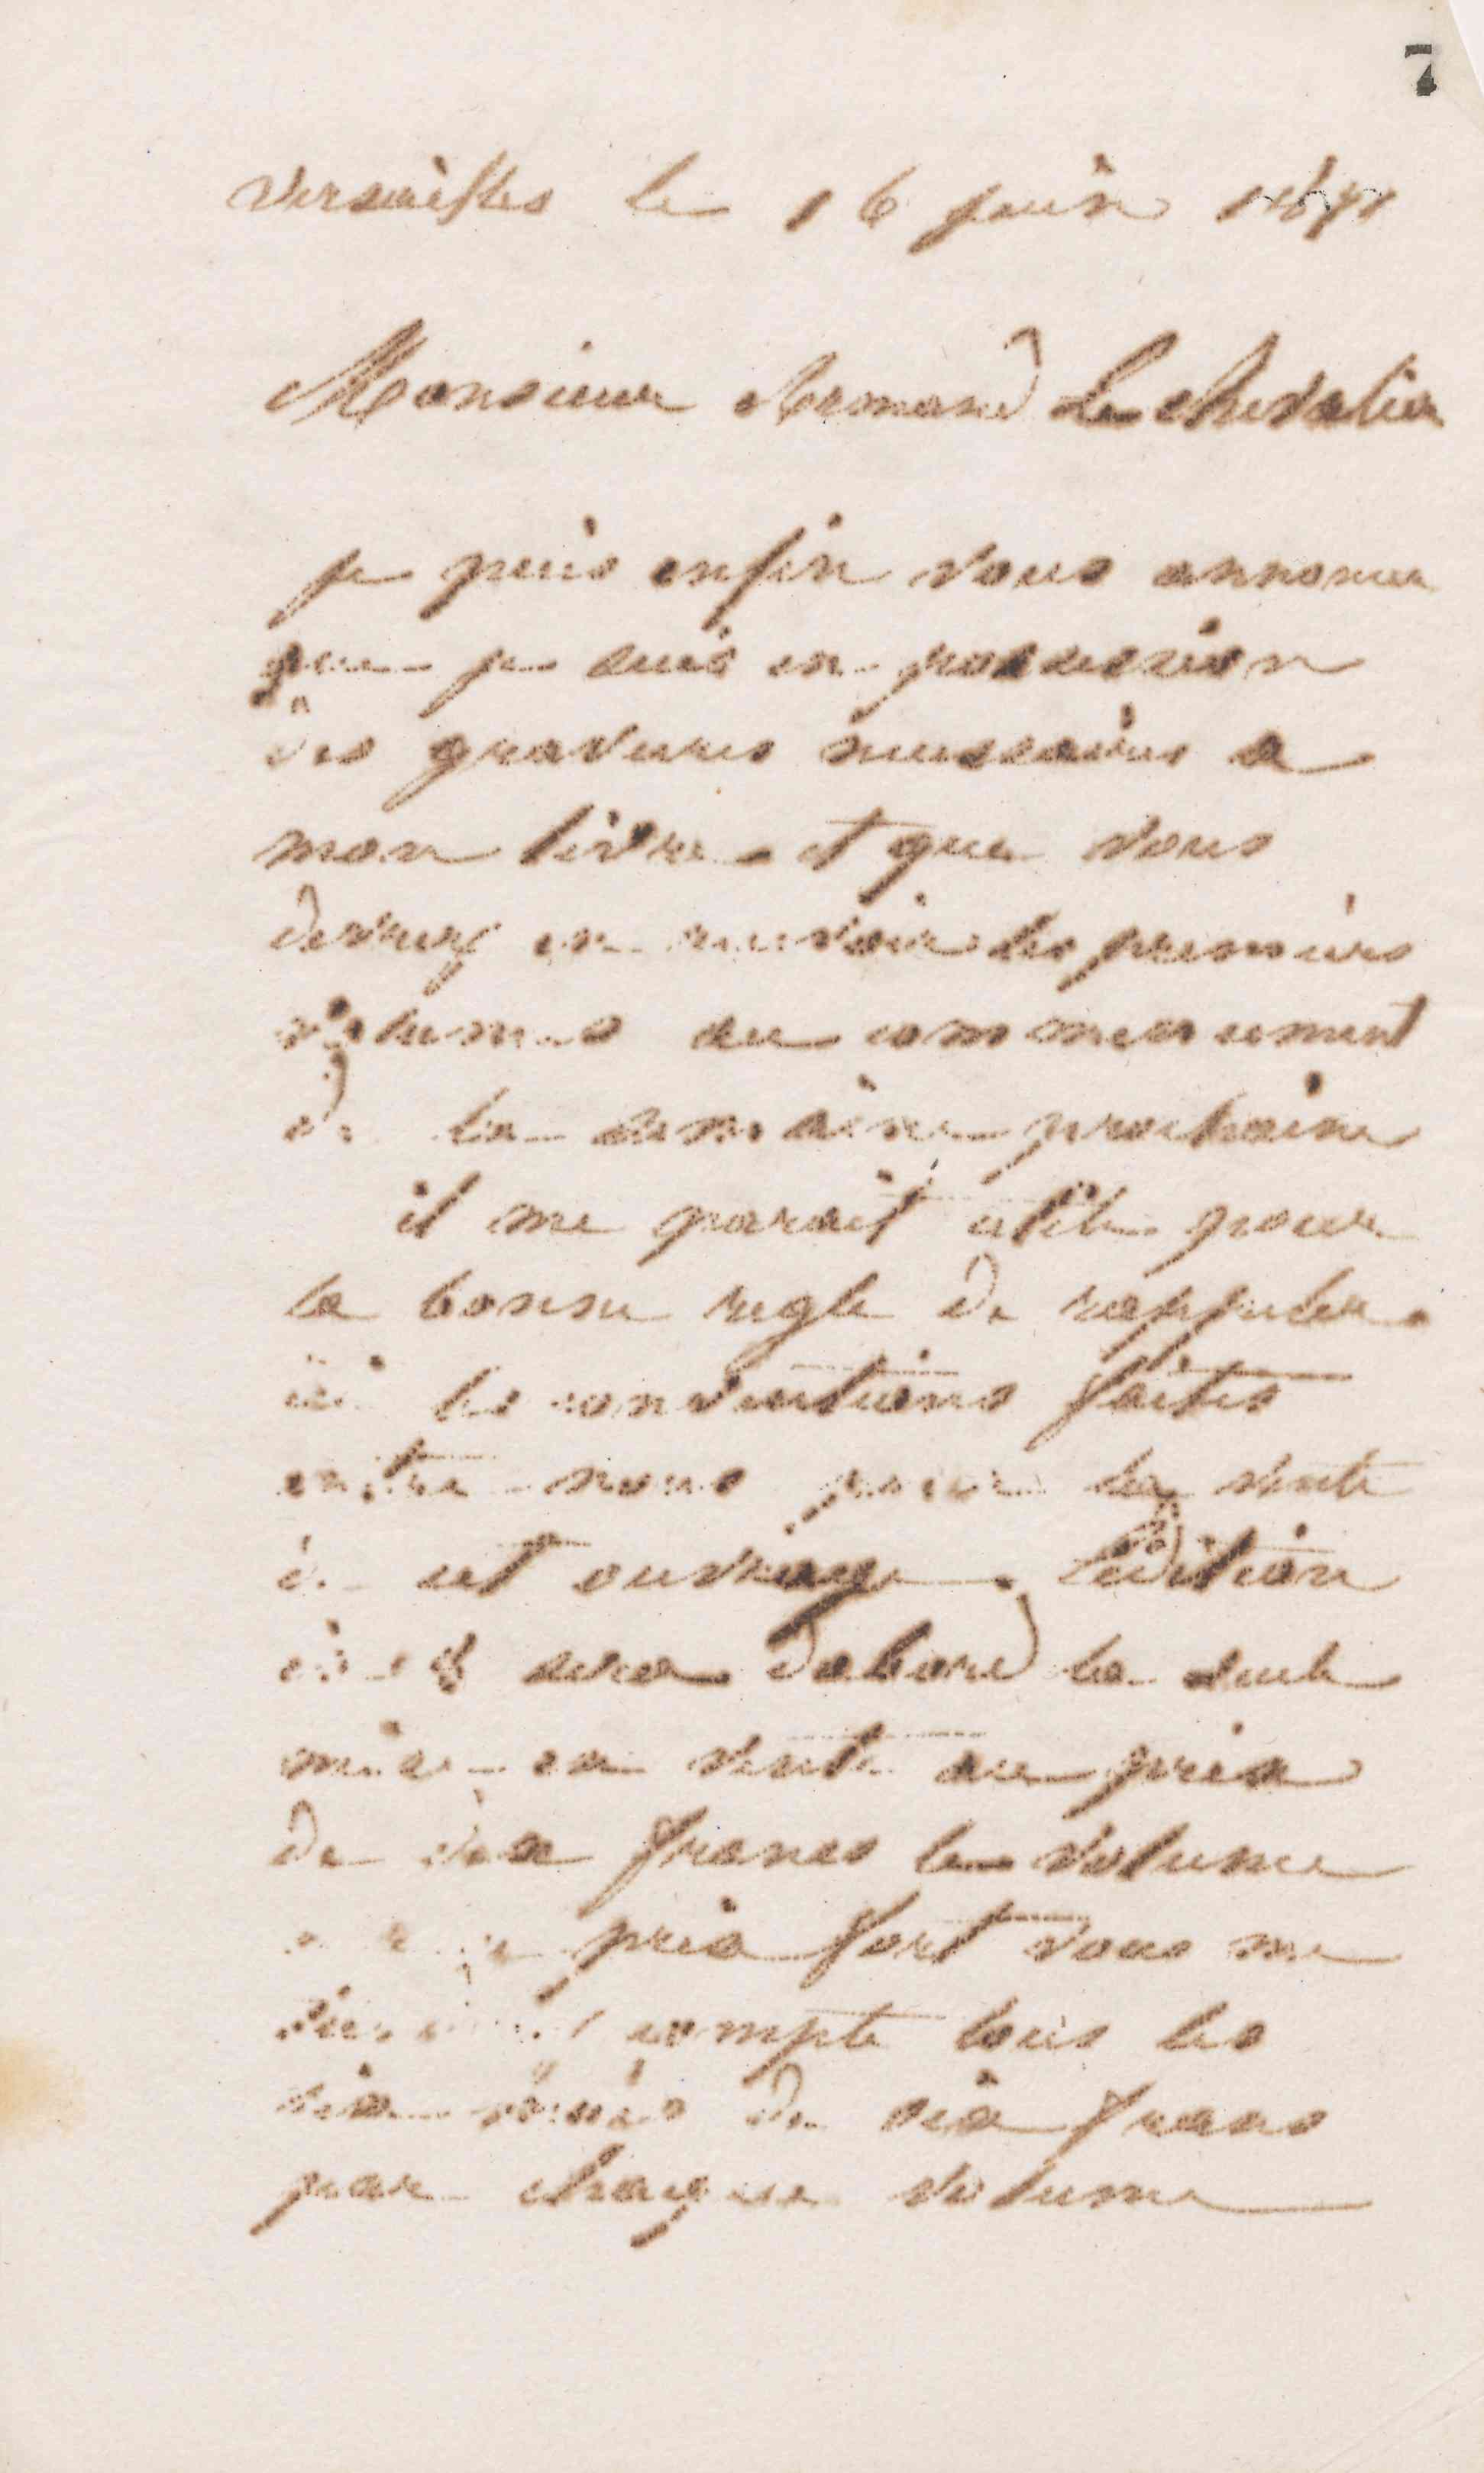 7
Versailles le 16 juin 1871
Monsieur Armand Le chevalier
je puis enfin vous annoncer
que je suis en possession
des gravures necessaires a
mon livre et que vous
devrez en recevoir les premiers
volumes au commencement
de la semaine prochaine
il me parait utile pour
la bonne regle de rappeler
ici les conventions faites
entre nous pour la vente
de cet ouvrage. ledition
in 8 sera dabord la seule
mise en vente au prix
de dix francs le volume
prix fort vous me
compte tous les
six mois de six francs
par chaque volume